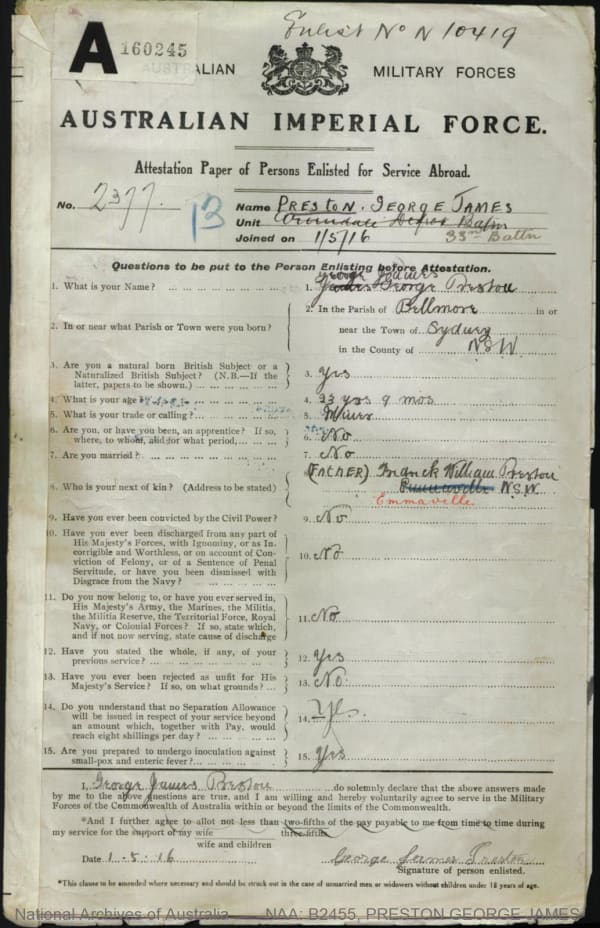 Enlist No N 10419
A 160245
AUSTRALIAN MILITARY FORCES
AUSTRALIAN IMPERIAL FORCE.
Attestation Paper of Persons Enlisted for Service Abroad.
No. 2377. 13 Name PRESTON. GEORGE JAMES
Unit Armidale Depot Battn
33rd Battn
Joined on 1/5/16
Questions to be put to the Person Enlisting before Attestation.
1. What is your Name? ... 1. George James
James George Preston
2. In or near what Parish or Town were you born? 2. In the Parish of Bellmore in or
near the Town of Sydney
in the County of N.S.W.
3. Are you a natural born British Subject or a
Naturalized British Subject? (N.B.—If the
latter, papers to be shown.) 3. Yes
4. What is your age? 4. 33 yrs 9 mos
5. What is your trade or calling? 5. Miner
6. Are you, or have you been, an apprentice? If so,
where, to whom, and for what period, 6. No
7. Are you married? 7. No
8. Who is your next of kin? (Address to be stated) 8. (FATHER) Fredrick William Preston
N.S.W.
Emmaville
9. Have you ever been convicted by the Civil Power? 9. No
10. Have you ever been discharged from any part of
His Majesty's Forces, with Ignominy, or as In-
corrigible and Worthless, or on account of Con-
viction of Felony, or of a Sentence of Penal
Servitude, or have you been dismissed with
Disgrace from the Navy? 10. No
11. Do you now belong to, or have you ever served in,
His Majesty's Army, the Marines, the Militia,
the Militia Reserve, the Territorial Force, Royal
Navy, or Colonial Forces? If so, state which,
and if not now serving, state cause of discharge 11. No
12. Have you stated the whole, if any, of your
previous service? 12. Yes
13. Have you ever been rejected as unfit for His
Majesty's Service? If so, on what grounds? 13. No
14. Do you understand that no Separation Allowance
will be issued in respect of your service beyond
an amount which, together with Pay, would
reach eight shillings per day? 14.
15. Are you prepared to undergo inoculation against
small-pox and enteric fever? 15. Yes
I, George James Preston do solemnly declare that the above answers made
by me to the above questions are true, and I am willing and hereby voluntarily agree to serve in the Military
Forces of the Commonwealth of Australia within or beyond the limits of the Commonwealth.
*And I further agree to allot not less than two-fifths of the pay payable to me from time to time during
three-fifths
my service for the support of my wife
wife and children
Date 1.5.16 George James Preston
Signature of person enlisted.
*This clause to be amended where necessary and should be struck out in the case of unmarried men or widowers without children under 18 years of age.
National Archives of Australia NAA: B2455, PRESTON GEORGE JAMES